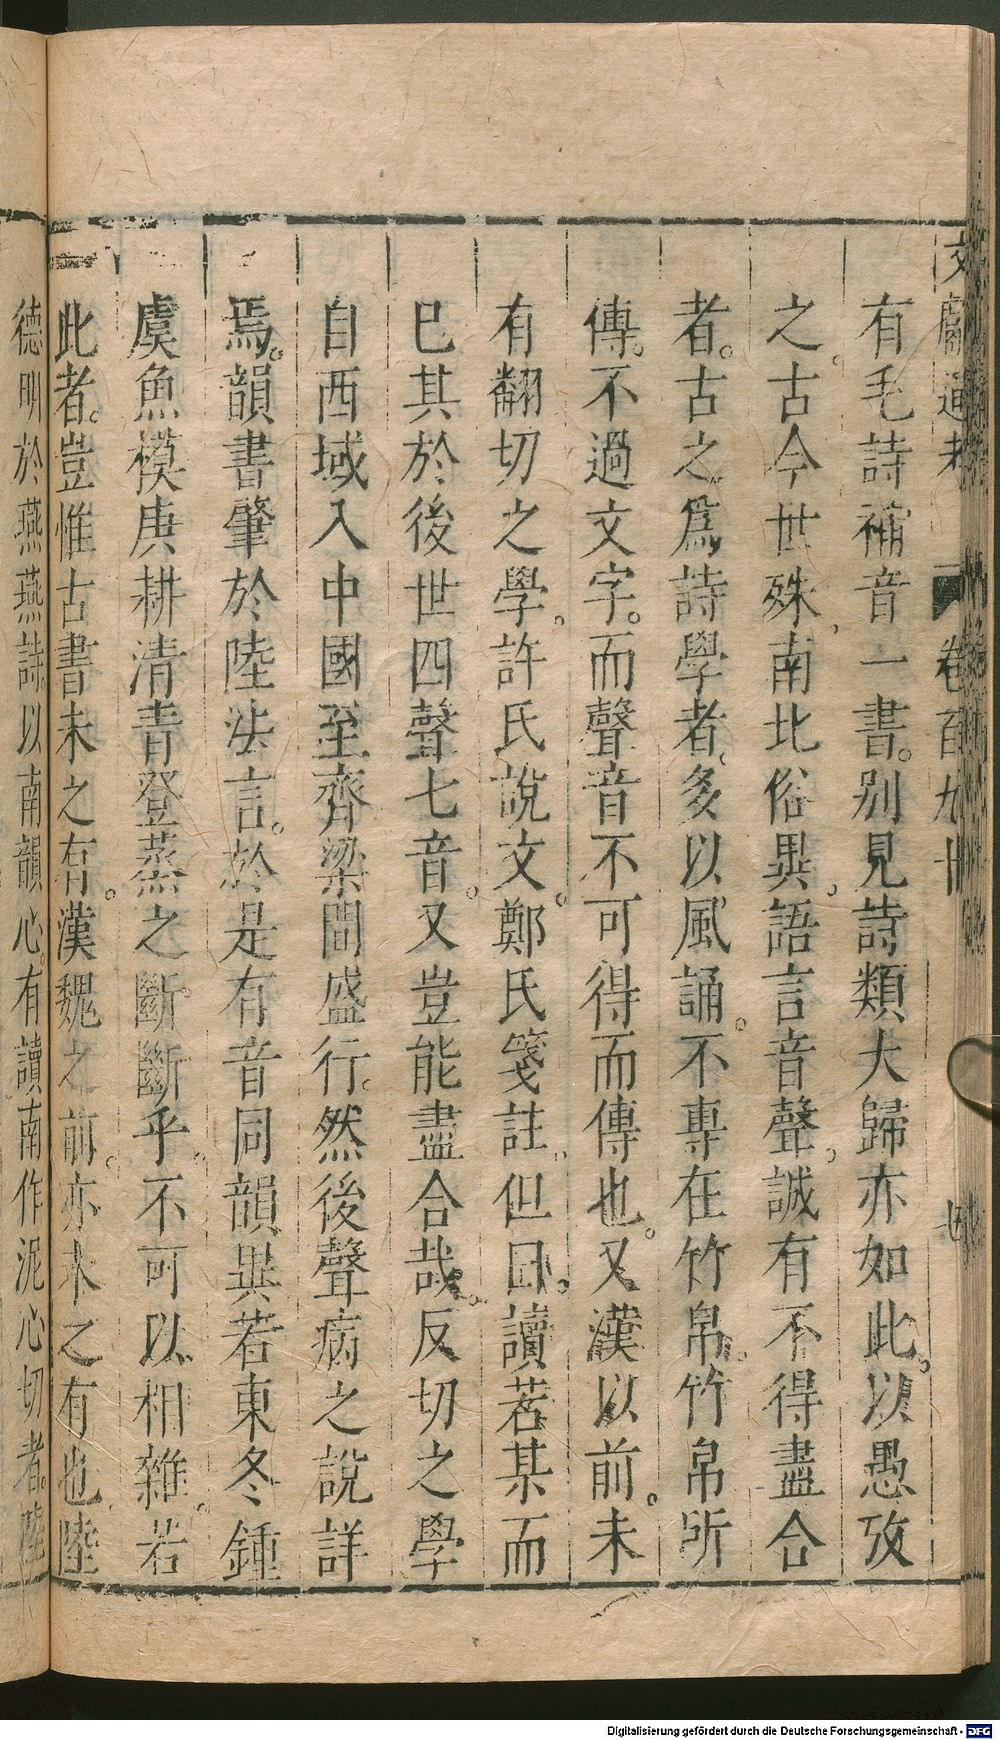 文獻通考 卷百九十 七
有毛詩補音一書別見詩類夫歸亦如此以愚攷
之古今世殊南北俗異語言音聲誠有不得盡合
者古之爲詩學者多以風誦不專在竹帛竹帛所
傳不過文字而聲音不可得而傳也又漢以前未
有翻切之學許氏說文鄭氏箋註但曰讀若某而
巳其於後世四聲七音又豈能盡合哉反切之學
自西域入中國至齊梁間盛行然後聲病之說詳
焉韻書肇於陸法言於是有音同韻異若東冬鍾
虞魚模庚耕清青登蒸之斷斷乎不可以相雜若
此者豈惟古書未之有漢魏之前亦未之有也陸
德明於燕燕詩以南韻心有讀南作泥心切者陸
Digitalisierung gefördert durch die Deutsche Forschungsgemeinschaft - DFG